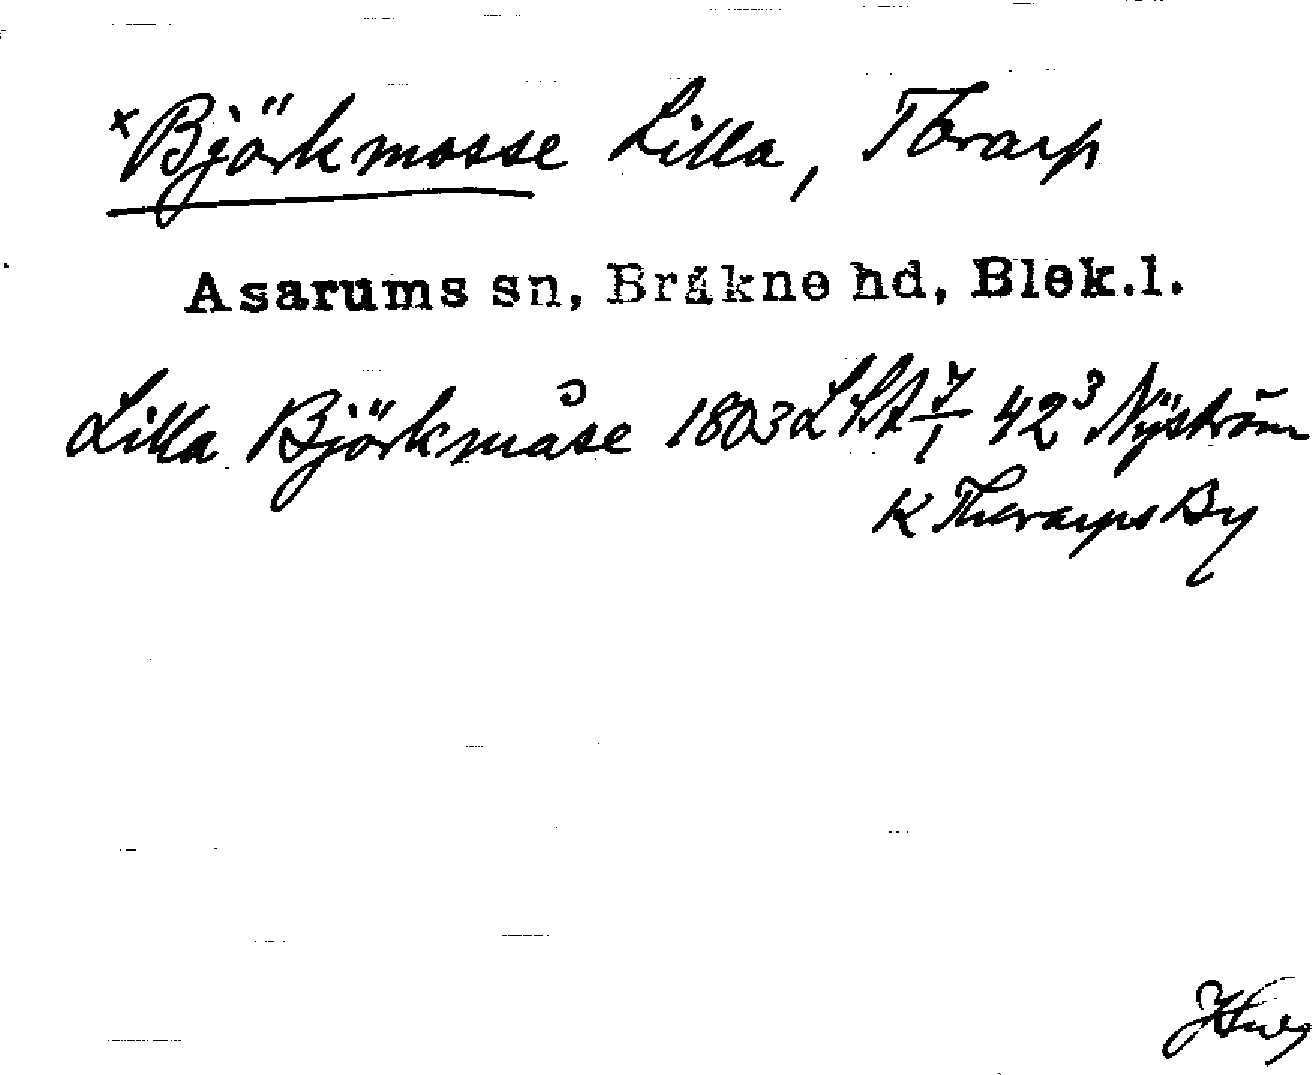 × Björkmosse Lilla, Torarp
Asarums sn, Bräkne hd, Blek.l.
Lilla Björkmåse 1803 LSA 7/1 42³ Nÿström
K Therarps By